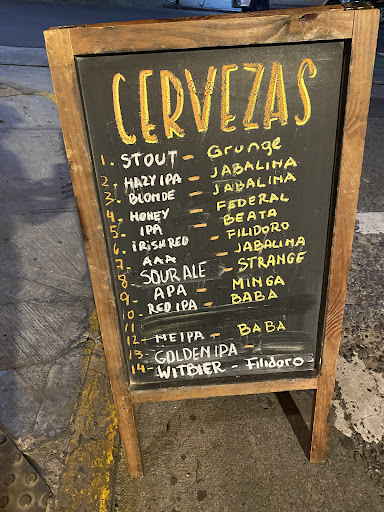 CERVEZAS
1. STOUT - Grunge
2- HAZY IPA - JABALINA
3- BLONDE - JABALINA
4- HONEY - FEDERAL
5- IPA - BEATA
6- IRISH RED - FILIDORO
7- AAA - JABALINA
8- SOUR ALE - STRANGE
9- APA - MINGA
10- RED IPA - BABA
11
12- NEIPA - BABA
13- GOLDEN IPA -
14- WITBIER - Filidoro